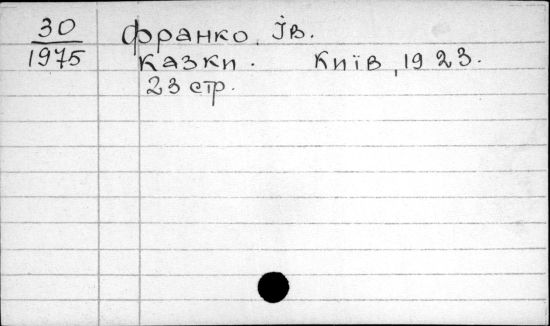 30 Франко, Ів.
1975 Казки. Київ, 1923.
23 стр.